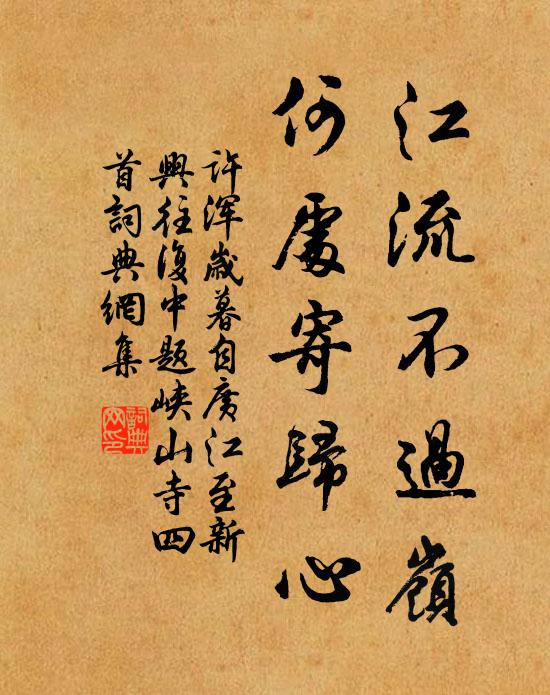 江流不過嶺
何處寄歸心
許渾歲暮自廣江至新
興往復中題峽山寺四
首詞典網集
詞典网印